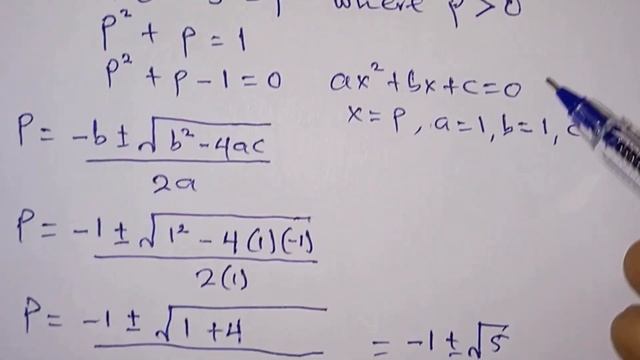 where p > 0
p² + p = 1
p² + p - 1 = 0
ax² + bx + c = 0
x = p, a = 1, b = 1, c
p = -b ± √b² - 4ac
2a
p = -1 ± √1² - 4(1)(-1)
2(1)
p = -1 ± √1 + 4
= -1 ± √5